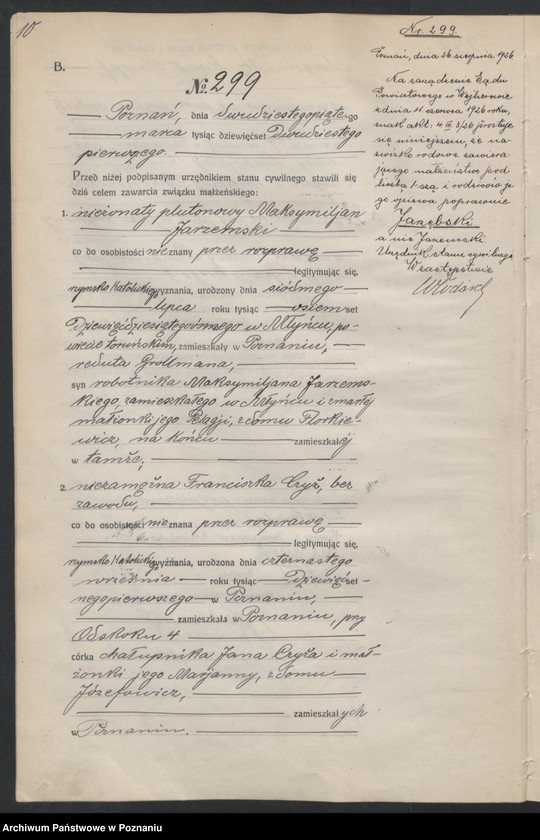 10
B.
No 299
Poznań, dnia dwudziestegopiątego
marca tysiąc dziewięćset dwudziestego
pierwszego.
Przed niżej podpisanym urzędnikiem stanu cywilnego stawili się
dziś celem zawarcia związku małżeńskiego:
1. nieżonaty plutonowy Maksymiljan
Jarzemski
co do osobistości nieznany przez rozprawę
legitymując się,
rzymsko katolickiego wyznania, urodzony dnia siódmego
lipca roku tysiąc osiemset
dziewięćdziesiątego w Młyńcu, po-
wiecie toruńskim, zamieszkały w Poznaniu,
reduta Grollmana,
syn robotnika Maksymiljana Jarzems-
kiego, zamieszkałego w Młyńcu i zmarłej
małżonki jego Pelagji, z domu Florkie-
wicz, na końcu zamieszkałej
w tamże,
2. niezamężna Franciszka Cryż, bez
zawodu,
co do osobistości nieznana przez rozprawę
legitymując się,
rzymsko katolickiego wyznania, urodzona dnia czternastego
września roku tysiąc dziewięćset-
nego pierwszego w Poznaniu,
zamieszkała w Poznaniu, przy
Odskoku 4
córka chałupnika Jana Cryża i mał-
żonki jego Marjanny, z domu
Józefowicz,
zamieszkałych
w Poznaniu.
Nr. 299.
Poznań, dnia 26 sierpnia 1926
Na zarządzenie Sądu
Powiatowego w Wejherowie
z dnia 11 czerwca 1926 roku,
znak akt: 4 III 8/26 prostuje
się niniejszem, że na-
zwisko rodowe zawiera-
jącego małżeństwo pod
liczbą 1-szą i rodziców je-
go opiewa poprawnie
Jarzębski
a nie Jarzemski.
Urzędnik stanu cywilnego
W zastępstwie
Archiwum Państwowe w Poznaniu